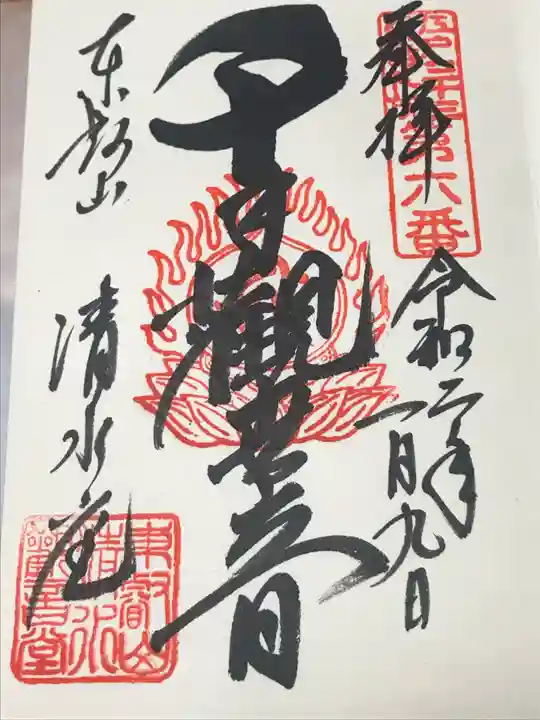 奉拝
令和二年
一月九日
千手觀世音
東叡山
清水堂
第六番
東叡山
清水
觀音堂